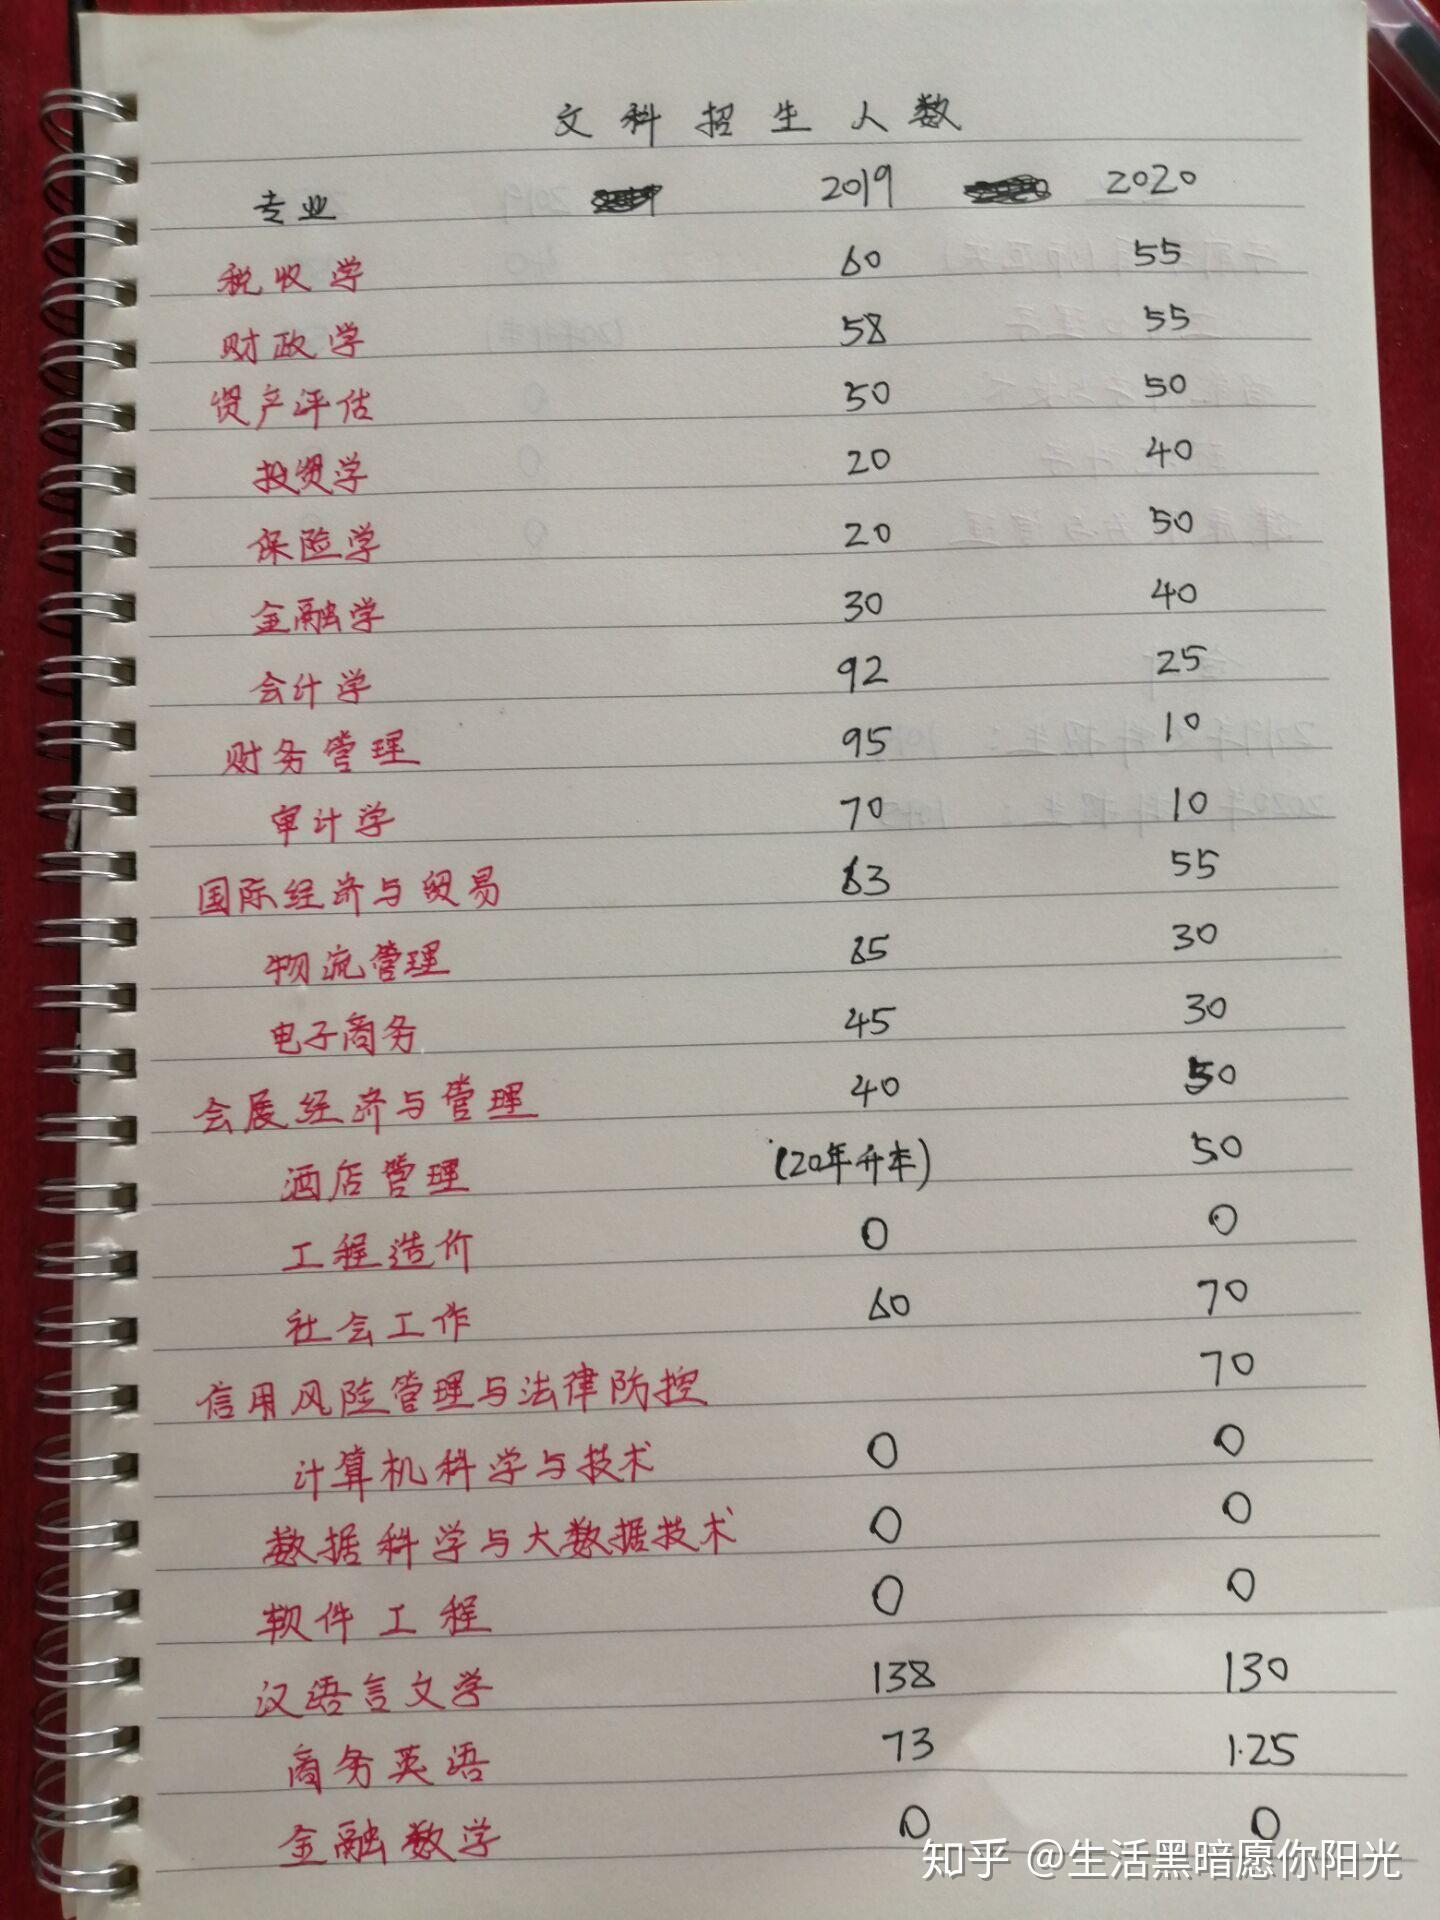 文科招生人数
专业 2019 2020
税收学 60 55
财政学 58 55
资产评估 50 50
投资学 20 40
保险学 20 50
金融学 30 40
会计学 92 25
财务管理 95 10
审计学 70 10
国际经济与贸易 83 55
物流管理 85 30
电子商务 45 30
会展经济与管理 40 50
酒店管理 (20年升本) 50
工程造价 0 0
社会工作 60 70
信用风险管理与法律防控 70
计算机科学与技术 0 0
数据科学与大数据技术 0 0
软件工程 0 0
汉语言文学 138 130
商务英语 73 125
金融数学 0 0
知乎 @生活黑暗愿你阳光